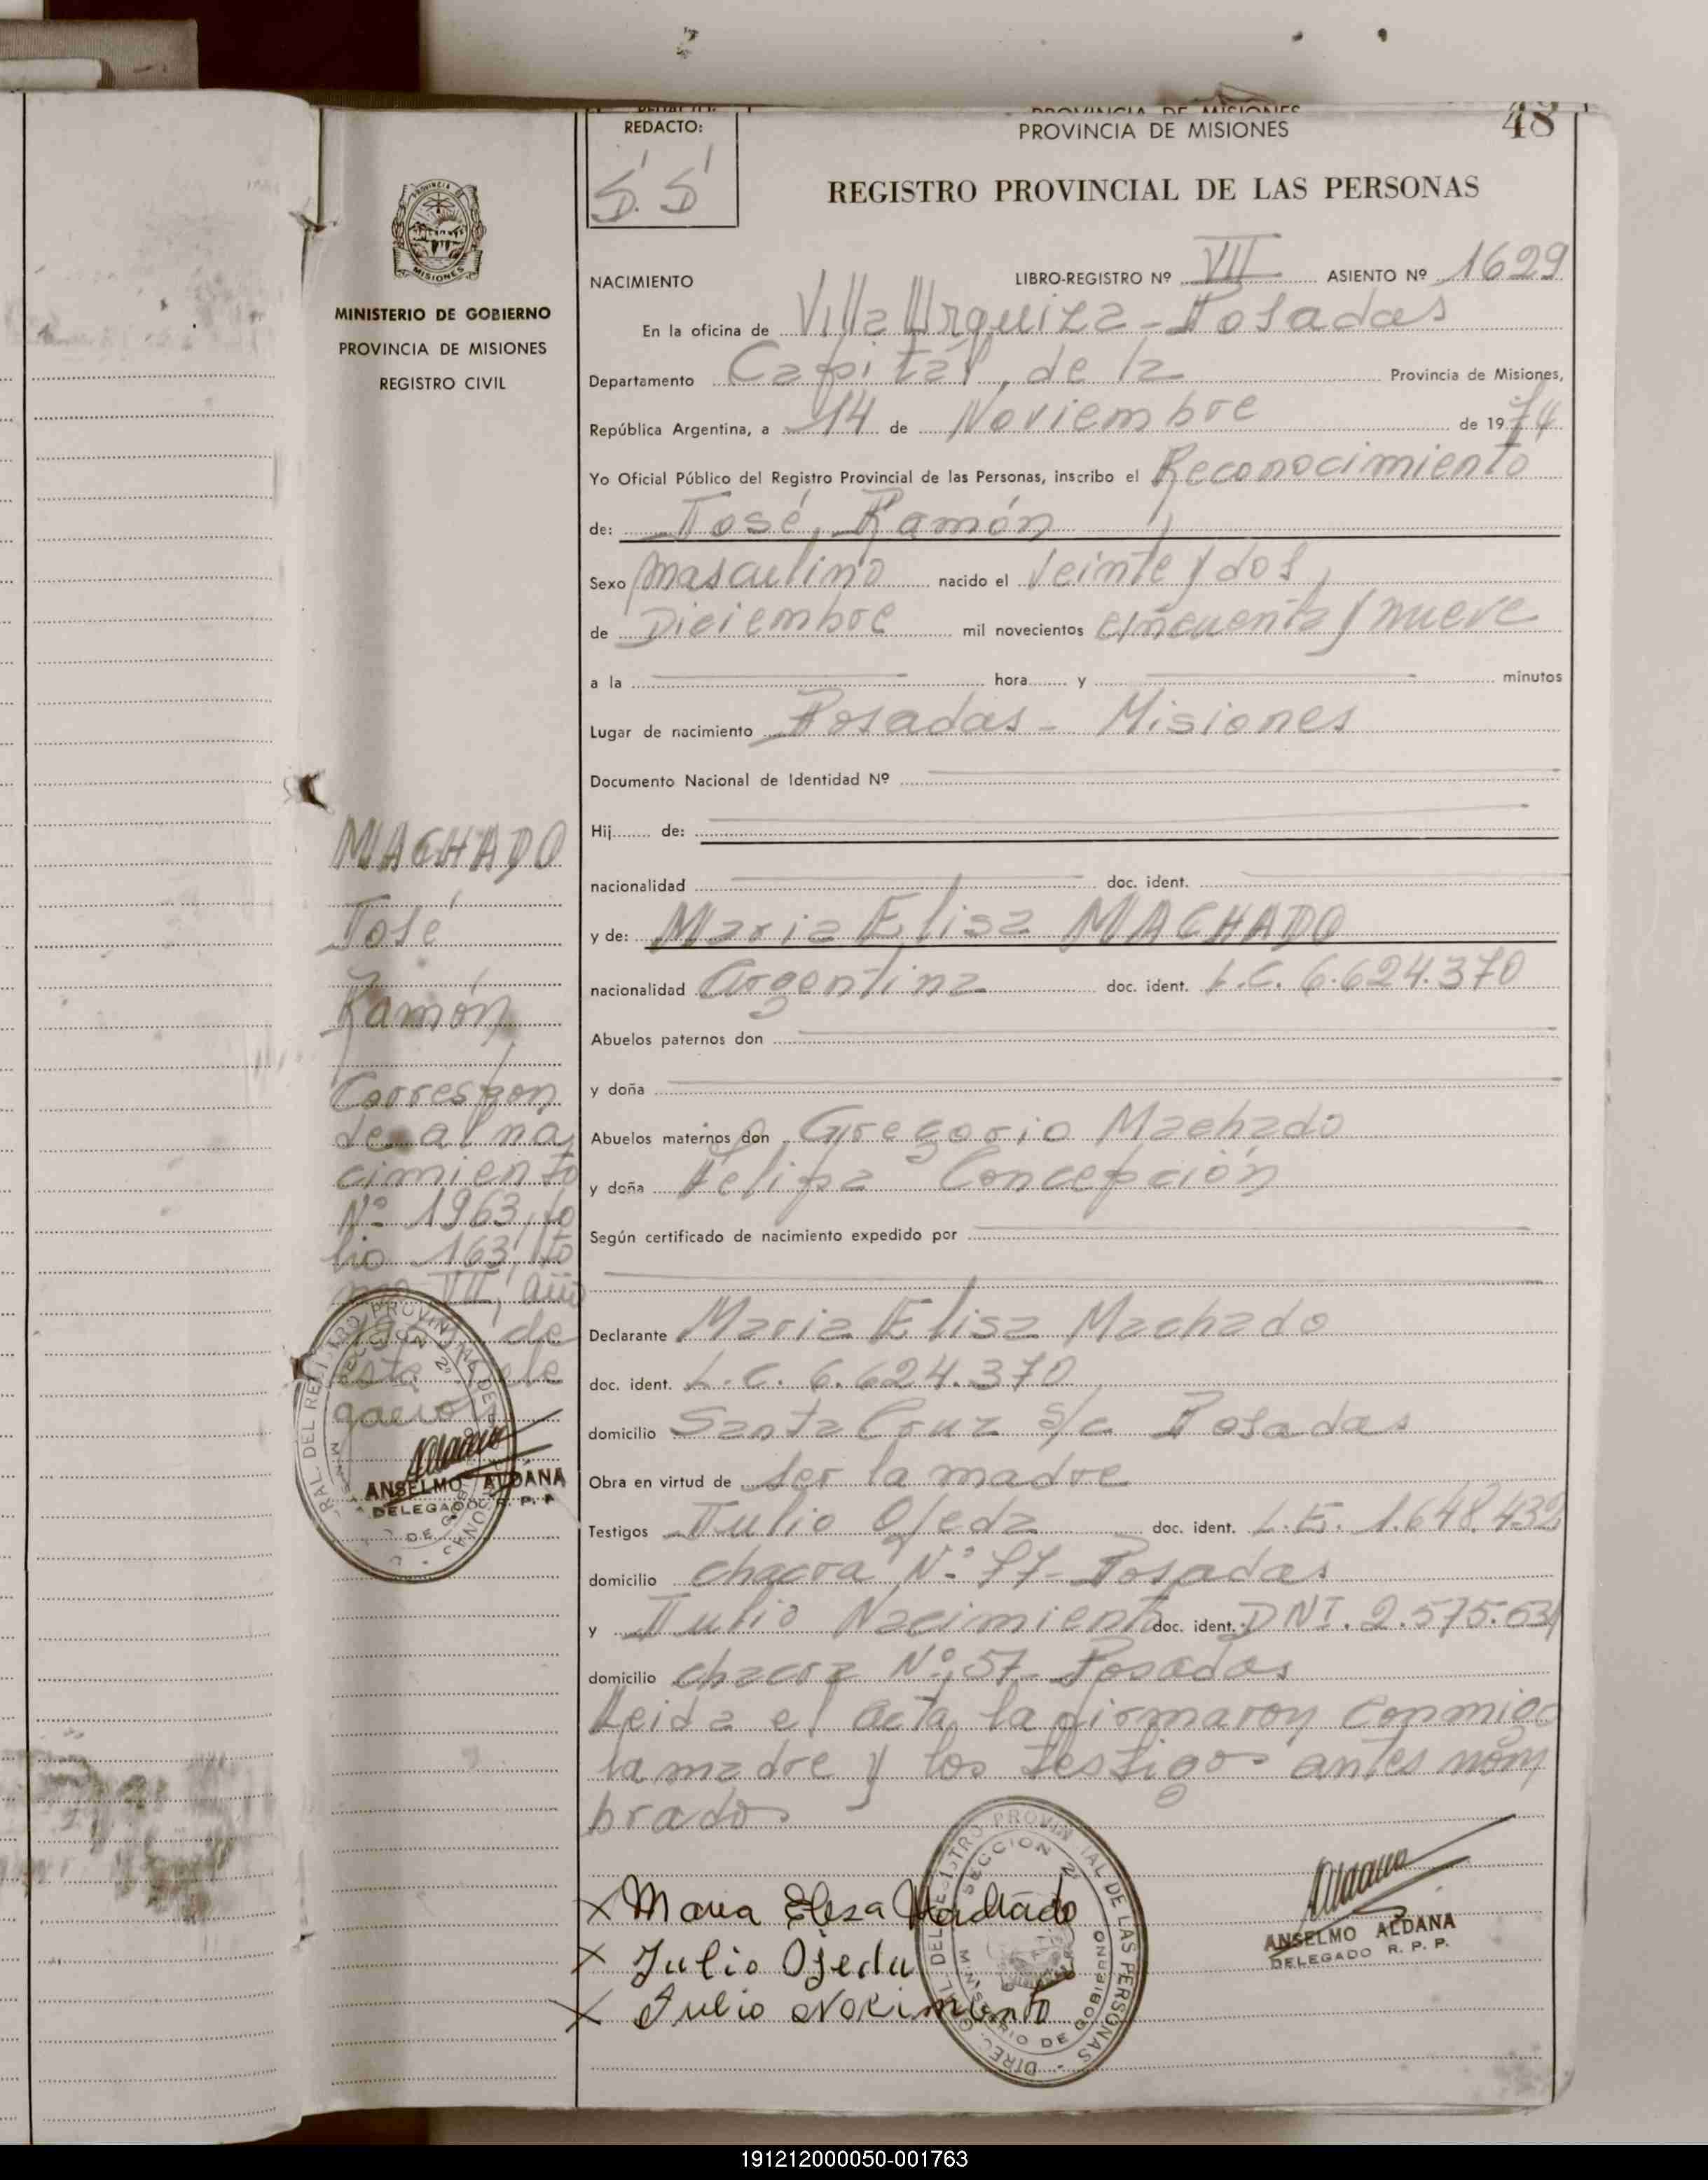 PROVINCIA DE MISIONES
REDACTO:
PROVINCIA DE MISIONES
48
S. S.
REGISTRO PROVINCIAL DE LAS PERSONAS
MISIONES
MINISTERIO DE GOBIERNO
PROVINCIA DE MISIONES
REGISTRO CIVIL
NACIMIENTO LIBRO-REGISTRO Nº VII ASIENTO Nº 1629
En la oficina de Villa Urquiza - Posadas
Departamento Capital, de la Provincia de Misiones,
República Argentina, a 14 de Noviembre de 1974
Yo Oficial Público del Registro Provincial de las Personas, inscribo el Reconocimiento
de: José Ramón
Sexo masculino nacido el veinte y dos
de Diciembre mil novecientos cincuenta y nueve
a la hora y minutos
Lugar de nacimiento Posadas - Misiones
Documento Nacional de Identidad Nº
Hij de:
nacionalidad doc. ident.
y de: Maria Elisa MACHADO
nacionalidad Argentina doc. ident. L.C. 6.624.370
Abuelos paternos don
y doña
Abuelos maternos don Gregorio Machado
y doña Felipa Concepción
Según certificado de nacimiento expedido por
Declarante Maria Elisa Machado
doc. ident. L.C. 6.624.370
domicilio Santa Cruz s/c Posadas
Obra en virtud de ser la madre
Testigos Julio Ojeda doc. ident. L.E. 1.648.432
domicilio chacra Nº 77 - Posadas
y Julio Nacimiento doc. ident. DNI. 2.575.631
domicilio chacra Nº 57 - Posadas
Leida el acta, la firmaron conmigo
la madre y los testigos antes nom
brados
MACHADO
José
Ramón
Correspon
de al na
cimiento
Nº 1963, fo
lio 163, to
mo VII, año
de
esta Dele
gación
ANSELMO ALDANA
DELEGADO R. P. P.
x Maria Elisa Machado
x Julio Ojeda
x Julio Nacimiento
DIREC. GRAL. DEL REGISTRO PROVINCIAL DE LAS PERSONAS
SECCION 2ª
MINISTERIO DE GOBIERNO
ANSELMO ALDANA
DELEGADO R. P. P.
191212000050-001763